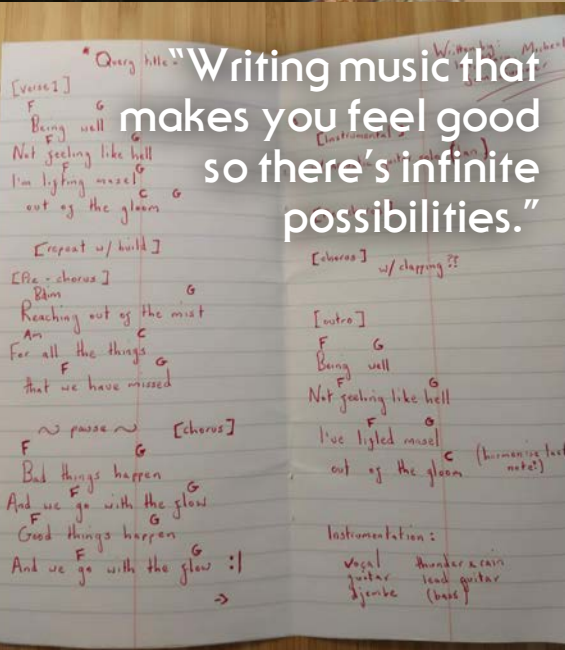 “Writing music that
makes you feel good
so there’s infinite
possibilities.”
* Query title -
[verse 1]
F G
Being well
F G
Not feeling like hell
F G
I'm lifting mesel
C G
out of the gloom
[repeat w/ build]
[Pre-chorus]
Bdim G
Reaching out of the mist
Am C
For all the things
F G
that we have missed
~ pause ~ [chorus]
F G
Bad things happen
F G
And we go with the flow
F G
Good things happen
F G
And we go with the flow :|
→
Written by:
[Instrumental]
[chorus]
w/ clapping ??
[outro]
F G
Being well
F G
Not feeling like hell
F G
I've lifted mesel
C
out of the gloom (harmonise last
note?)
Instrumentation:
vocal thunder & rain
guitar lead guitar
djembe (bass)